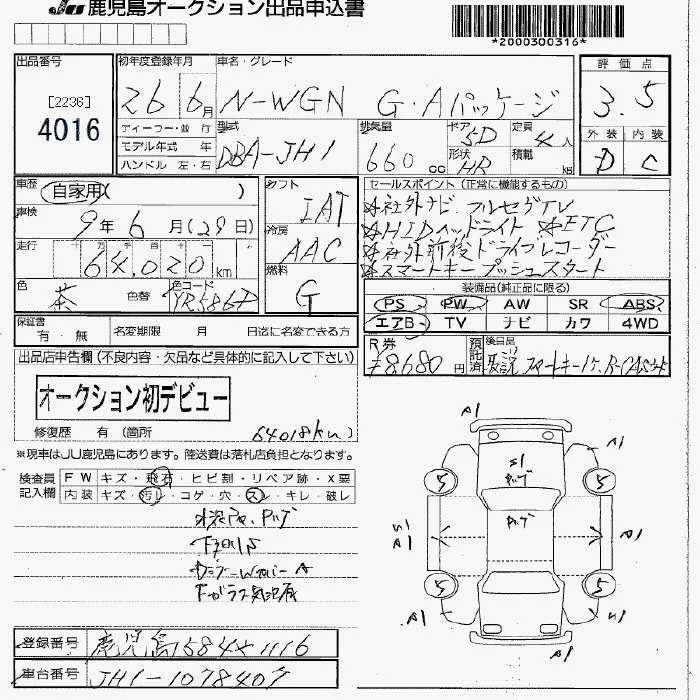 JU 鹿児島オークション出品申込書
*2000300316*
出品番号
[2236]
4016
初年度登録年月
26 6月
車名・グレード
N-WGN G・Aパッケージ
評価点
3.5
外装 内装
D C
ディーラー・並行
モデル年式 年
ハンドル 左・右
型式
DBA-JH1
排気量
660 cc
ドア 5D
定員 4人
形状 HR
積載 kg
車歴
自家用( )
車検
9年 6月(29日)
走行
十万千百十
64,020km
色
茶
色替
色コード
YR586P
シフト
IAT
冷房
AAC
燃料
G
セールスポイント(正常に機能するもの)
☆社外ナビ フルセグTV
☆HIDヘッドライト ☆ETC
☆社外前後ドライブレコーダー
☆スマートキー プッシュスタート
装備品(純正品に限る)
PS PW AW SR ABS
エアB TV ナビ カワ 4WD
保証書
有・無
名変期限 月 日迄に名変できる方
R券
¥8680円
預託済
後日品
取説 スマートキー1ケ B-CASカード
出品店申告欄(不良内容・欠品など具体的に記入して下さい)
オークション初デビュー
修復歴 有(箇所
64018km)
※現車はJU鹿児島にあります。陸送費は落札店負担となります。
検査員記入欄
FWキズ・飛石・ヒビ割・リペア跡・X要
内装キズ・汚レ・コゲ・穴・スレ・キレ・破レ
下回りS
A1
S1
5
5
A1
A1
A1
5
5
A1
A1
登録番号
鹿児島584 1116
車台番号
JH1-1078407